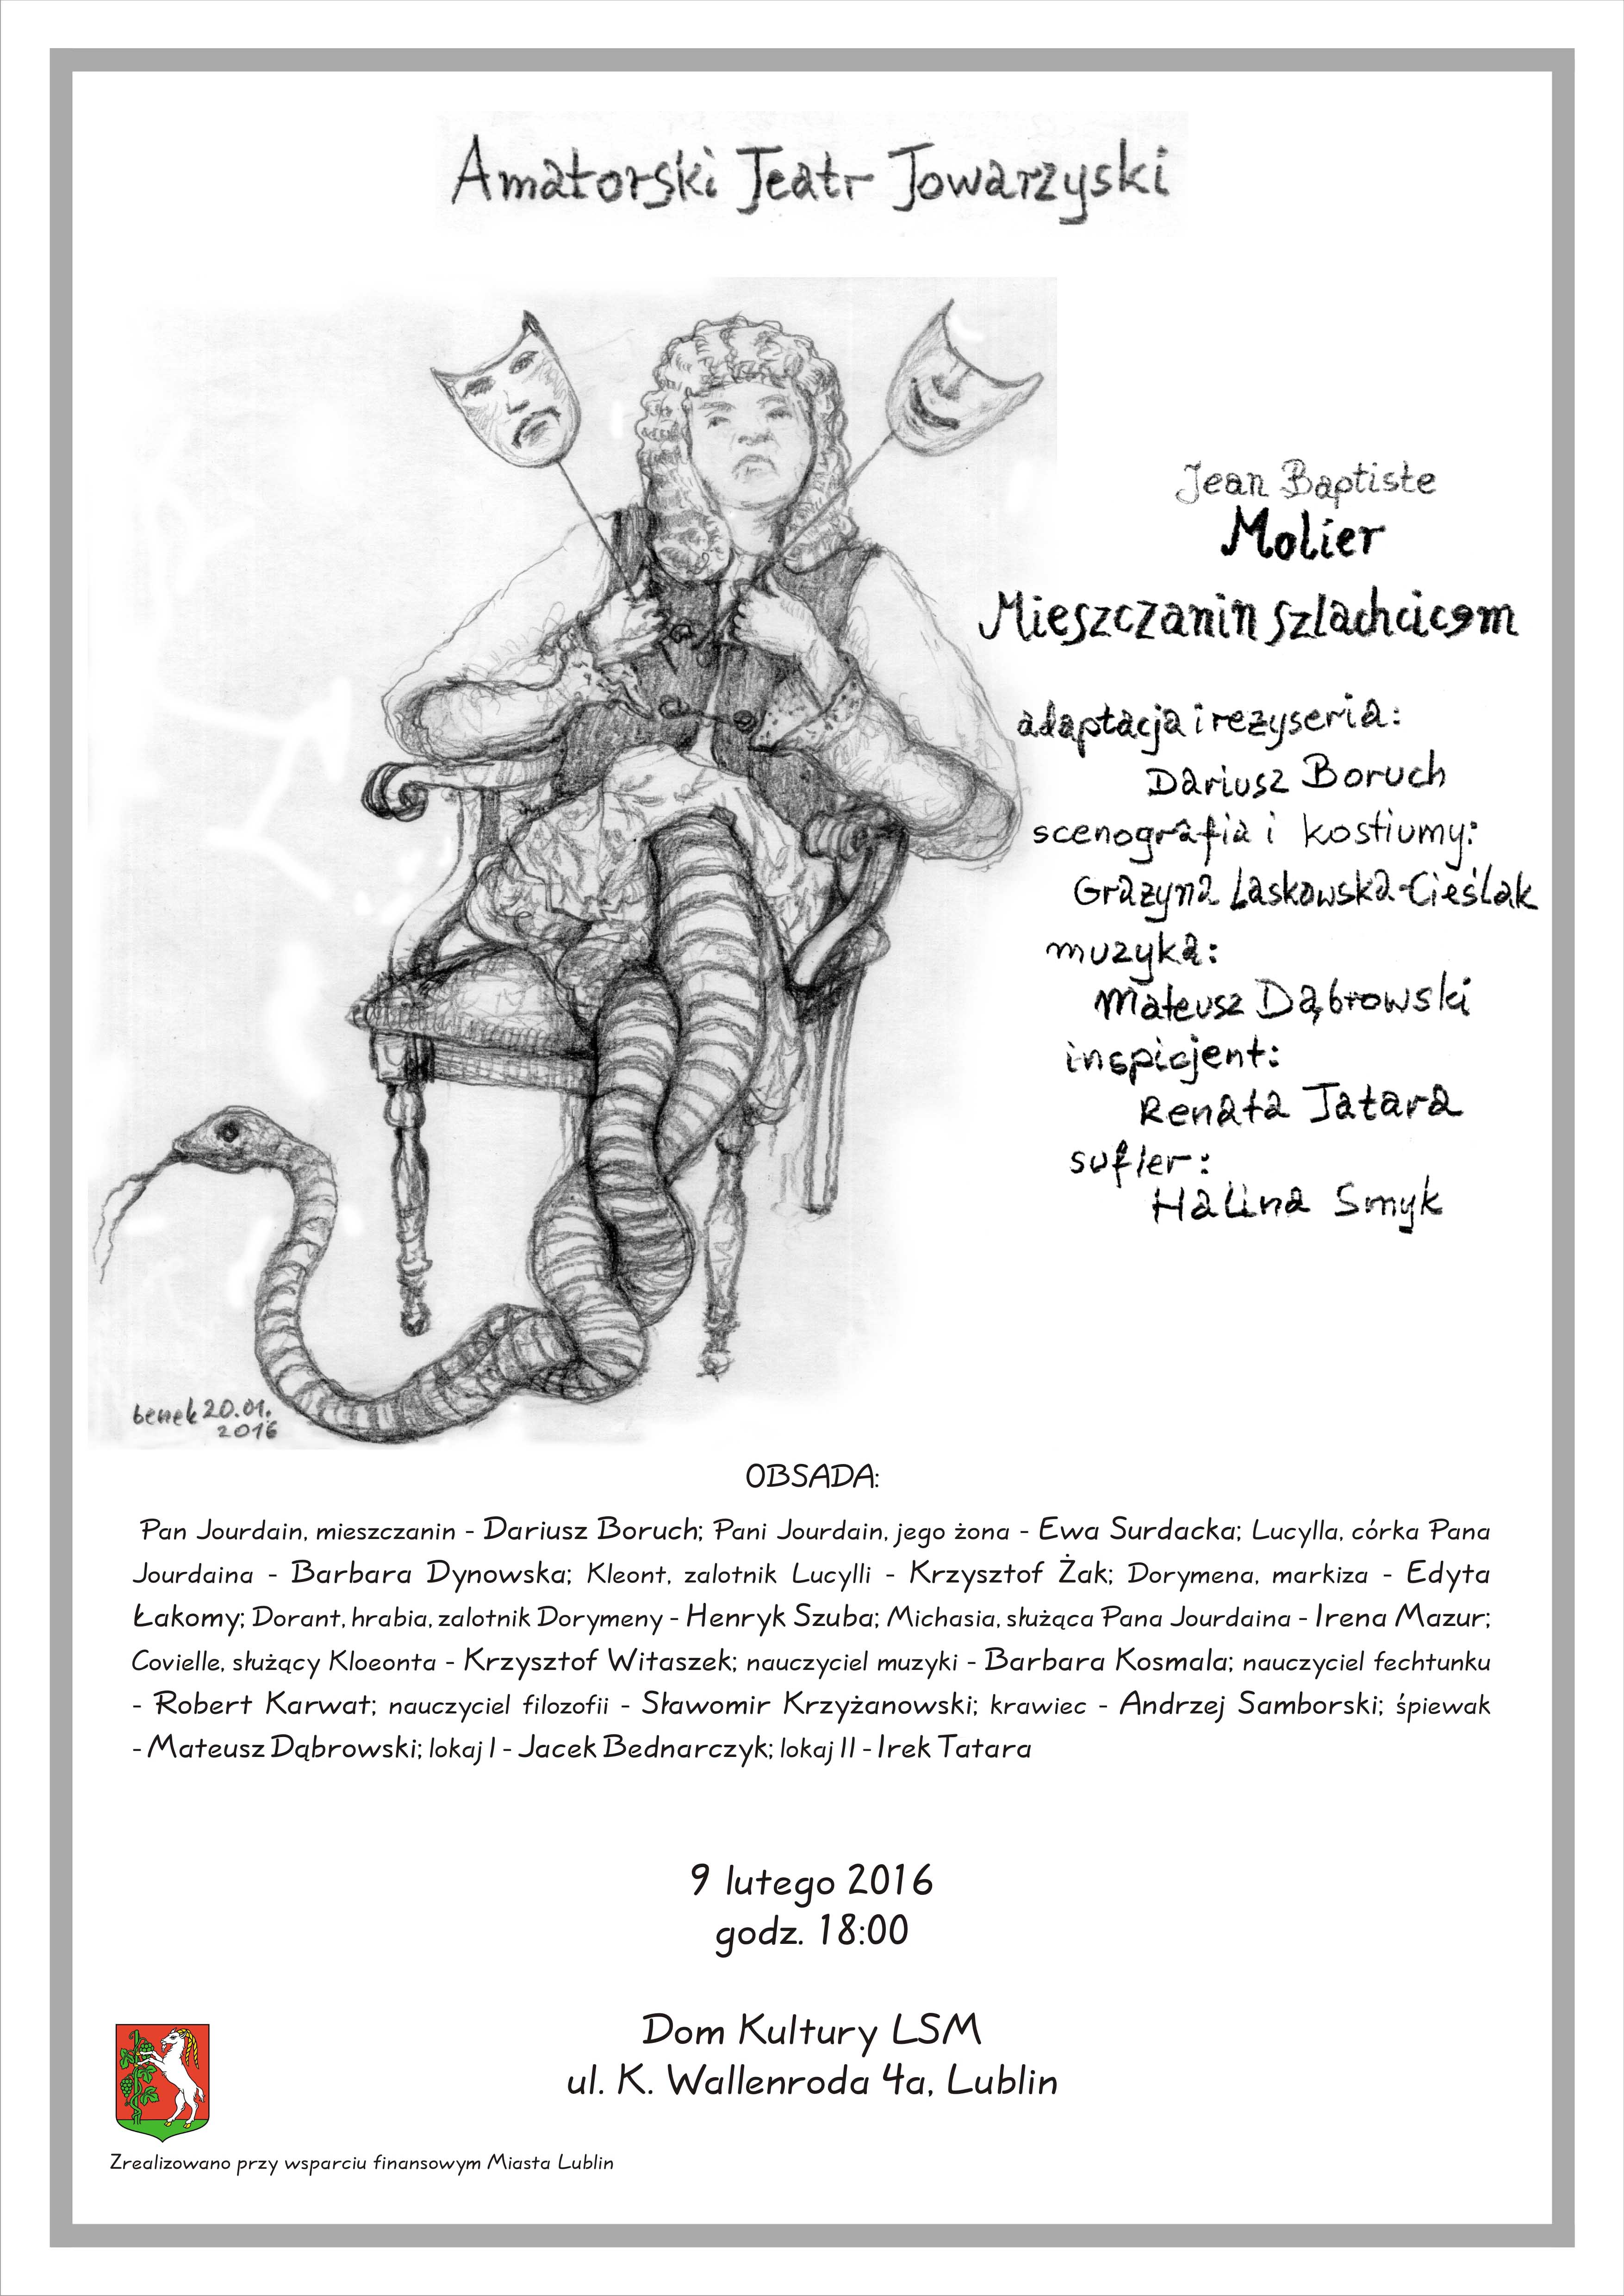 Amatorski Teatr Towarzyski
Jean Baptiste
Molier
Mieszczanin szlachcicem
adaptacja i reżyseria:
Dariusz Boruch
scenografia i kostiumy:
Grażyna Laskowska-Cieślak
muzyka:
Mateusz Dąbrowski
inspicjent:
Renata Tatara
sufler:
Halina Smyk
benek 20.01.
2016
OBSADA:
Pan Jourdain, mieszczanin - Dariusz Boruch; Pani Jourdain, jego żona - Ewa Surdacka; Lucylla, córka Pana
Jourdaina - Barbara Dynowska; Kleont, zalotnik Lucylli - Krzysztof Żak; Dorymena, markiza - Edyta
Łakomy; Dorant, hrabia, zalotnik Dorymeny - Henryk Szuba; Michasia, służąca Pana Jourdaina - Irena Mazur;
Covielle, służący Kloeonta - Krzysztof Witaszek; nauczyciel muzyki - Barbara Kosmala; nauczyciel fechtunku
- Robert Karwat; nauczyciel filozofii - Sławomir Krzyżanowski; krawiec - Andrzej Samborski; śpiewak
- Mateusz Dąbrowski; lokaj I - Jacek Bednarczyk; lokaj II - Irek Tatara
9 lutego 2016
godz. 18:00
Dom Kultury LSM
ul. K. Wallenroda 4a, Lublin
Zrealizowano przy wsparciu finansowym Miasta Lublin